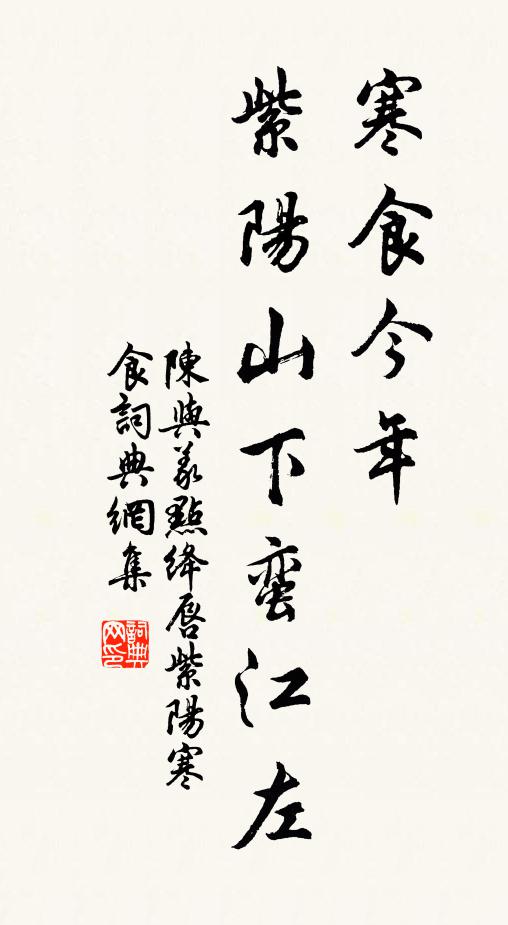 寒食今年
紫陽山下蛮江左
陳與義點絳唇紫陽寒
食詞典網集
詞典網印